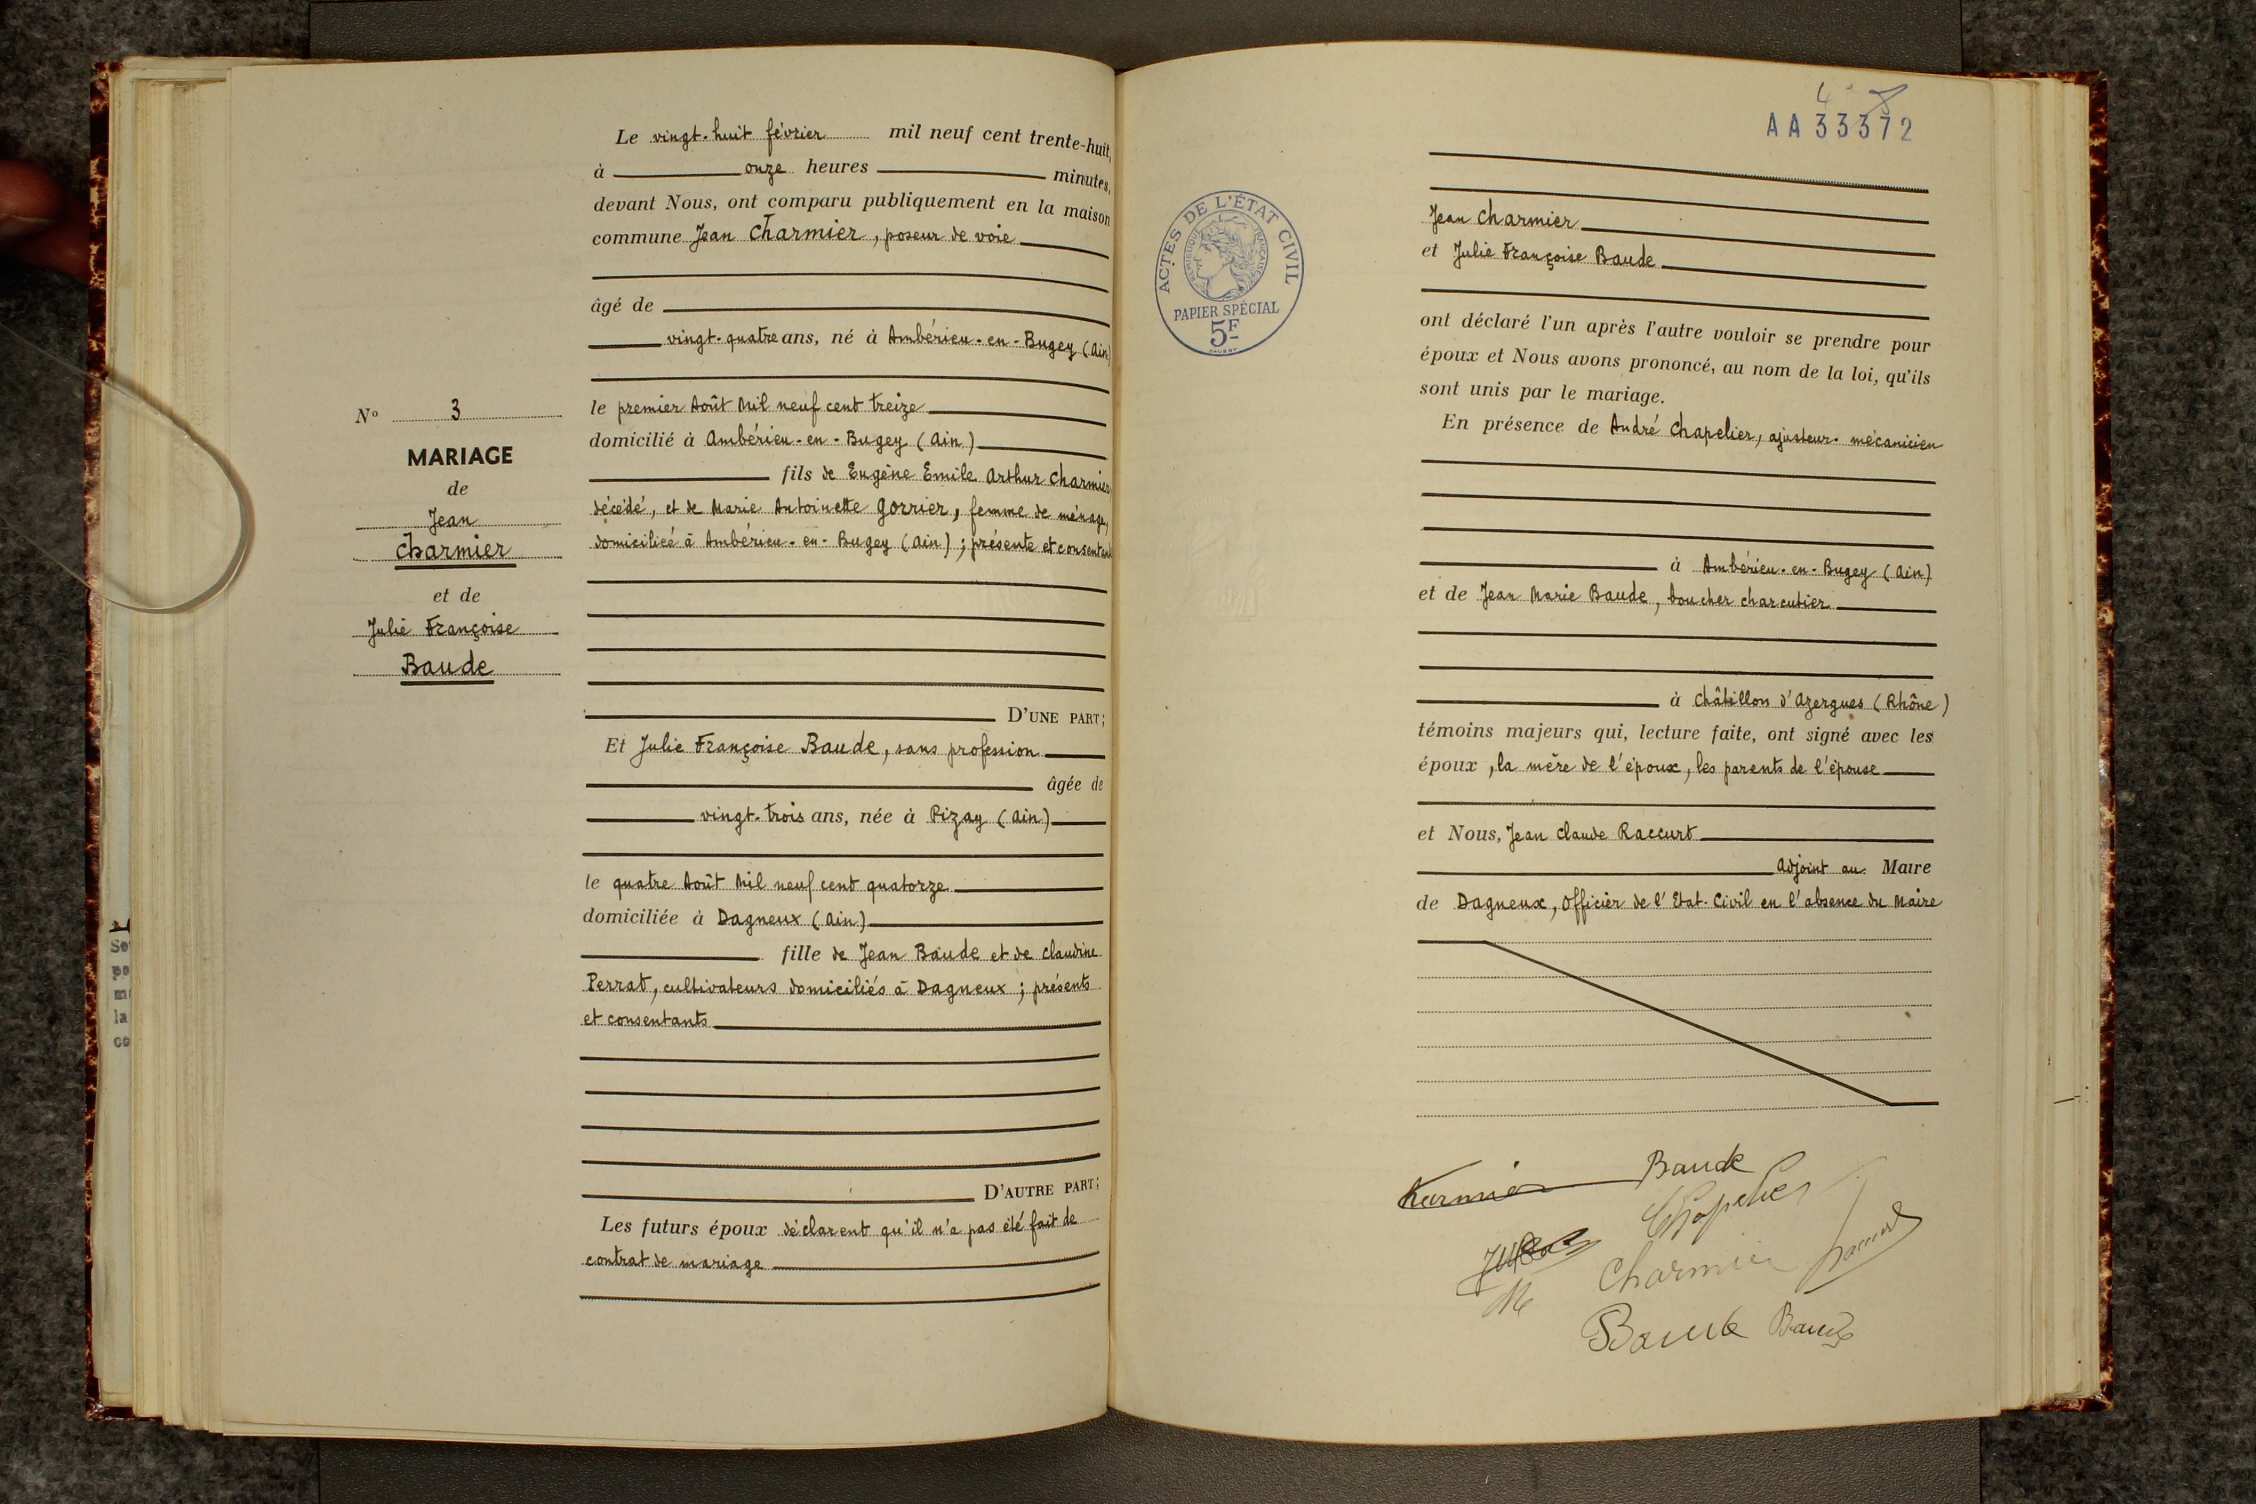 Le vingt-huit février mil neuf cent trente-huit,
à onze heures minutes,
devant Nous, ont comparu publiquement en la maison
commune Jean Charmier, poseur de voie
âgé de
vingt-quatre ans, né à Ambérieu-en-Bugey (Ain)
le premier Août Mil neuf cent treize
domicilié à Ambérieu-en-Bugey (Ain)
fils de Eugène Emile Arthur Charmier
décédé, et de Marie Antoinette Gorrier, femme de ménage,
domiciliée à Ambérieu-en-Bugey (Ain) ; présente et consentant
D'UNE PART ;
Et Julie Françoise Baude, sans profession
âgée de
vingt-trois ans, née à Pizay (Ain)
le quatre Août Mil neuf cent quatorze
domiciliée à Dagneux (Ain)
fille de Jean Baude et de Claudine
Perrat, cultivateurs domiciliés à Dagneux ; présents
et consentants
D'AUTRE PART ;
Les futurs époux déclarent qu'il n'a pas été fait de
contrat de mariage
No 3
MARIAGE
de
Jean
Charmier
et de
Julie Françoise
Baude
AA 33372
ACTES DE L'ÉTAT CIVIL
RÉPUBLIQUE FRANÇAISE
PAPIER SPÉCIAL
5F
Jean Charmier
et Julie Françoise Baude
ont déclaré l'un après l'autre vouloir se prendre pour
époux et Nous avons prononcé, au nom de la loi, qu'ils
sont unis par le mariage.
En présence de André Chapelier, ajusteur-mécanicien
à Ambérieu-en-Bugey (Ain)
et de Jean Marie Baude, boucher charcutier
à Châtillon d'Azergues (Rhône)
témoins majeurs qui, lecture faite, ont signé avec les
époux, la mère de l'époux, les parents de l'épouse
et Nous, Jean Claude Raccurt
Adjoint au Maire
de Dagneux, Officier de l'Etat-Civil en l'absence du Maire
Baude
Chapelier
Charmier
Baude Baude